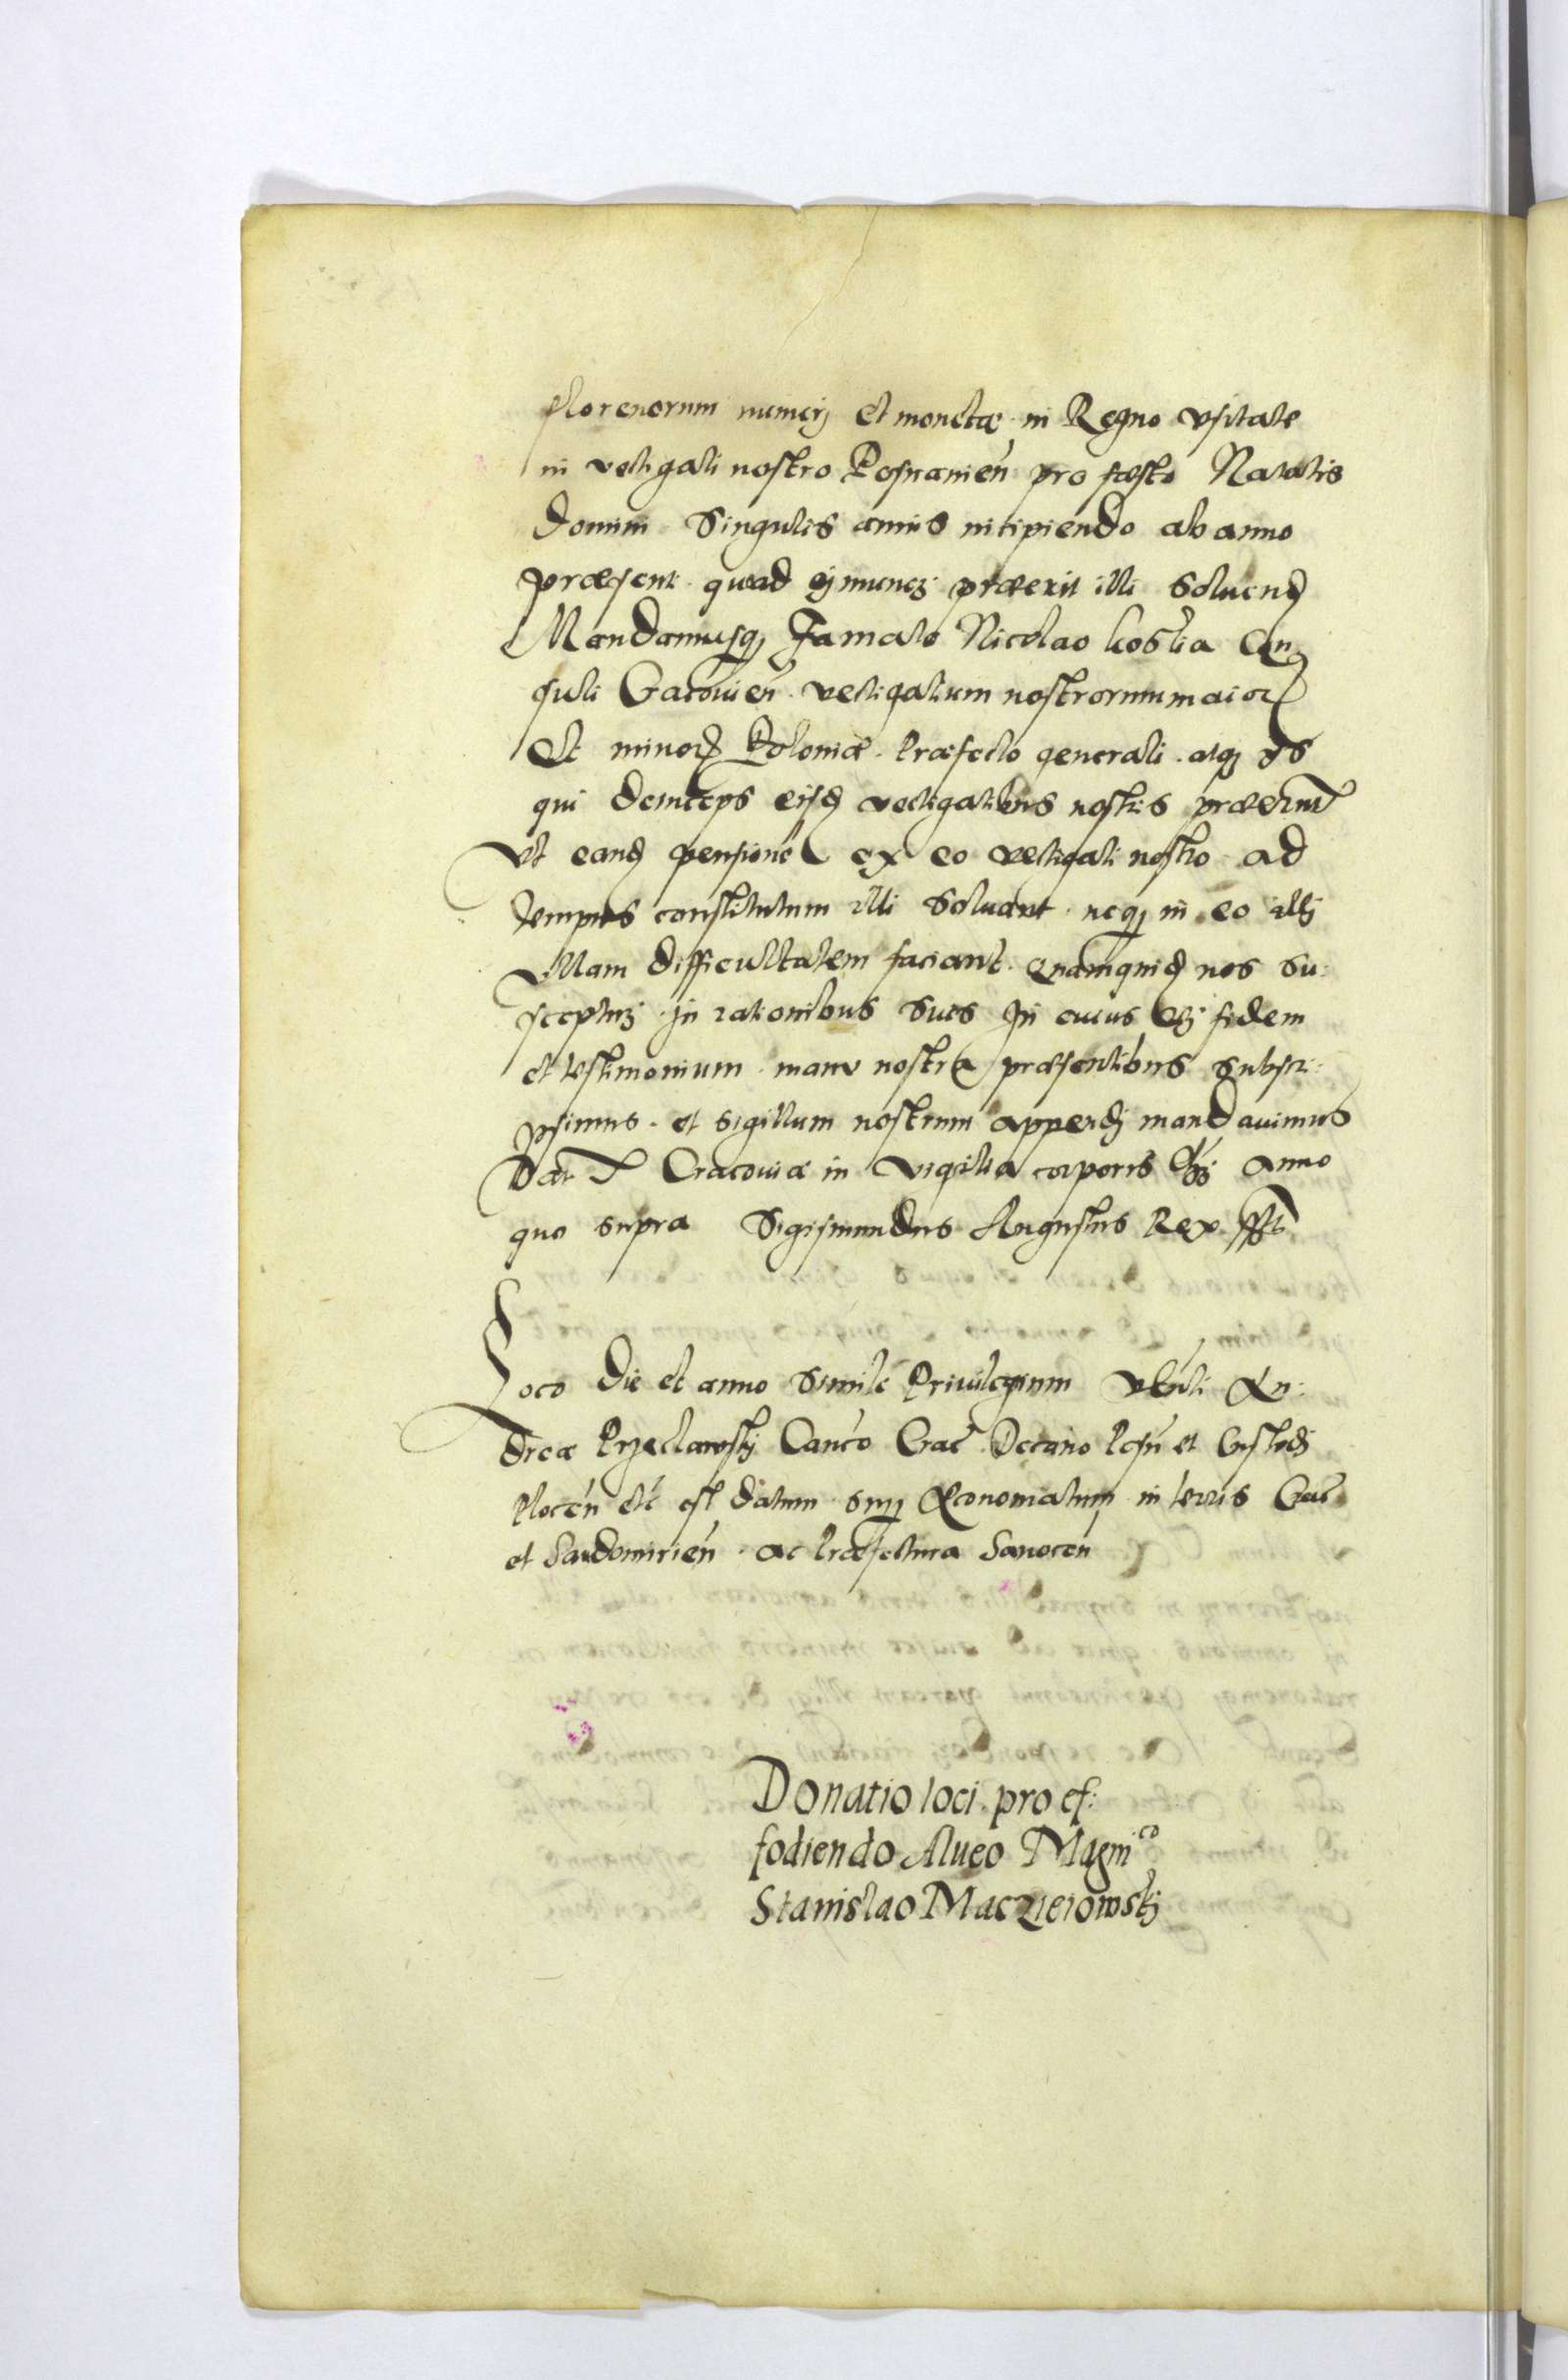 florenorum numerj et monetæ in Regno vsitate
in vectigali nostro Posnanien̄ pro fæsto Natalis
Domini Singulis annis incipiendo ab anno
præsenti quoad munerj præerit illi Soluend
Mandamusq₃ Famato Nicolao Kostka Con
suli Cracouien̄ vectigalium nostrorum maior
Et minor Poloniæ Præfecto generali atq₃ ijs
qui deinceps eisd vectigalibus nostris præerunt
Vt eand pensionē ex eo vectigali nostro ad
tempus constitutum illi Soluant neq₃ in eo illj
Vllam difficultatem faciant nos Su:
scepturj in rationibus Suis In cuius rej fidem
et testimonium manu nostra præsentibus subscri:
psimus et sigillum nostrum appendj mandauimus
Dat Cracouiæ in vigilia corporis Chrj anno
quo supra Sigismundus Augustus Rex sst
Loco die et anno Simile Priuilegium Vēnli An:
dreæ Przeclawskj Canco Crac Decano Posn et Custodj
Plocen etc est datum sup Œconomatum in terris Crac
et Sandomirien̄ ac Præfectura Sanocen
Donatio loci pro ef:
fodiendo Alueo Magnico
Stanislao Macziejowskj